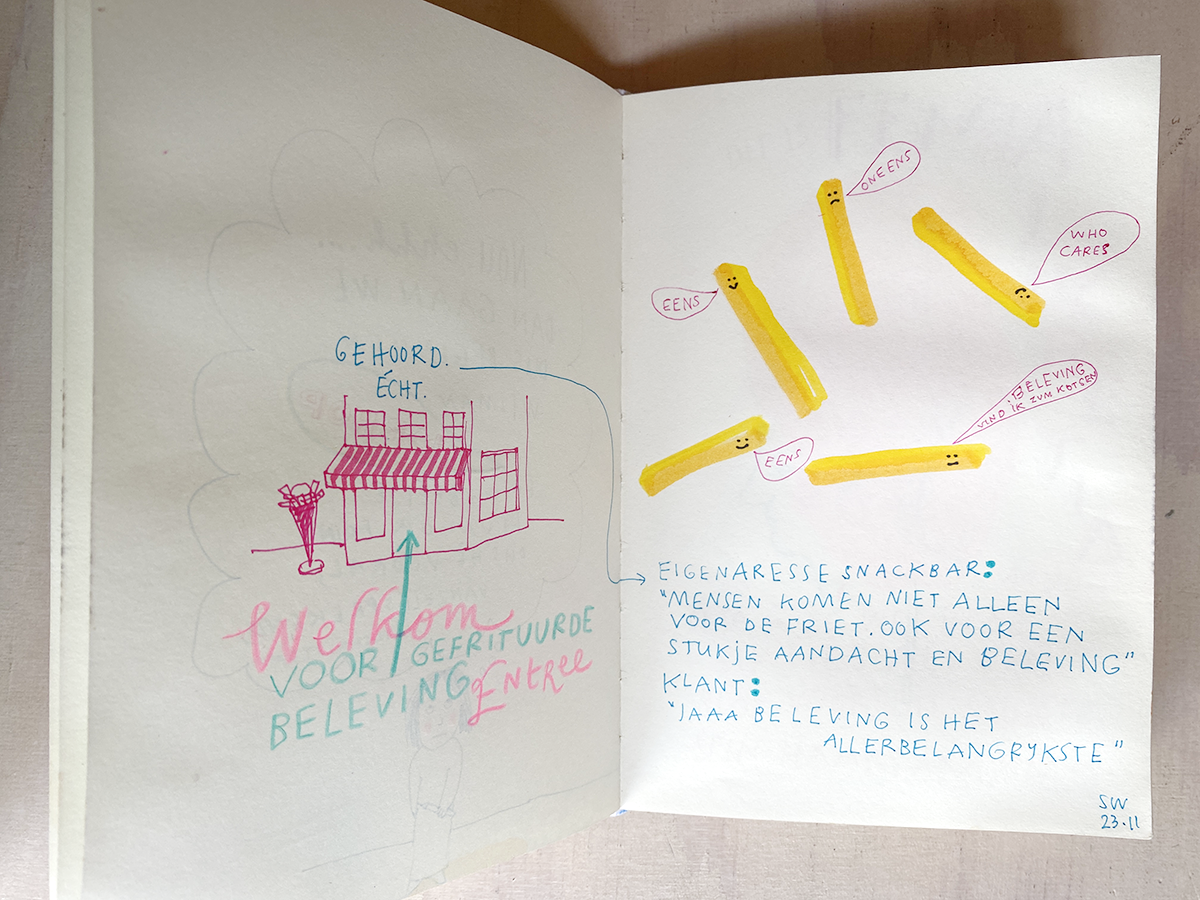 GEHOORD.
ÉCHT.
Welkom
VOOR GEFRITUURDE
BELEVING Entree
ONEENS
WHO
CARES
EENS
BELEVING
VIND IK ZUM KOTSEN
EENS
EIGENARESSE SNACKBAR:
"MENSEN KOMEN NIET ALLEEN
VOOR DE FRIET. OOK VOOR EEN
STUKJE AANDACHT EN BELEVING"
KLANT:
"JAAA BELEVING IS HET
ALLERBELANGRYKSTE"
SW
23.11